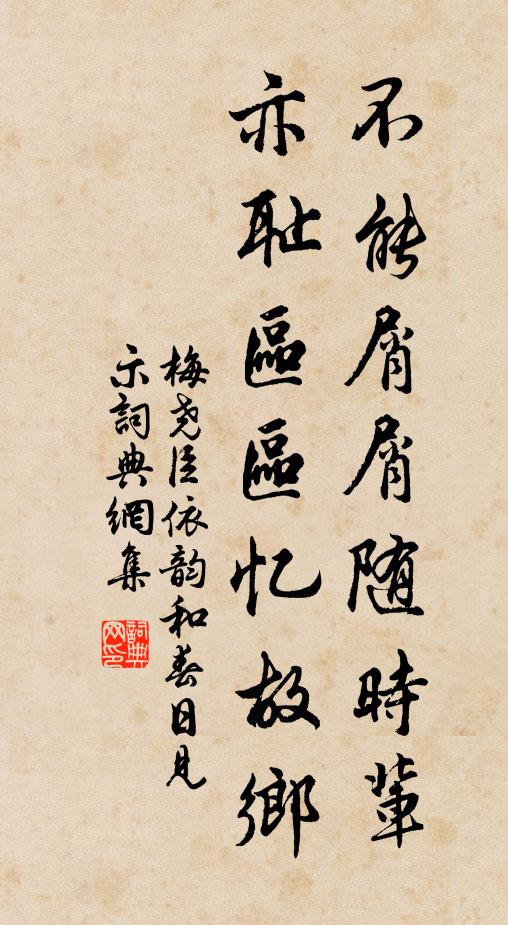 不能屑屑随時輩
亦耻區區忆故鄉
梅尧臣依韵和春日見
示詞典網集
詞典
网印